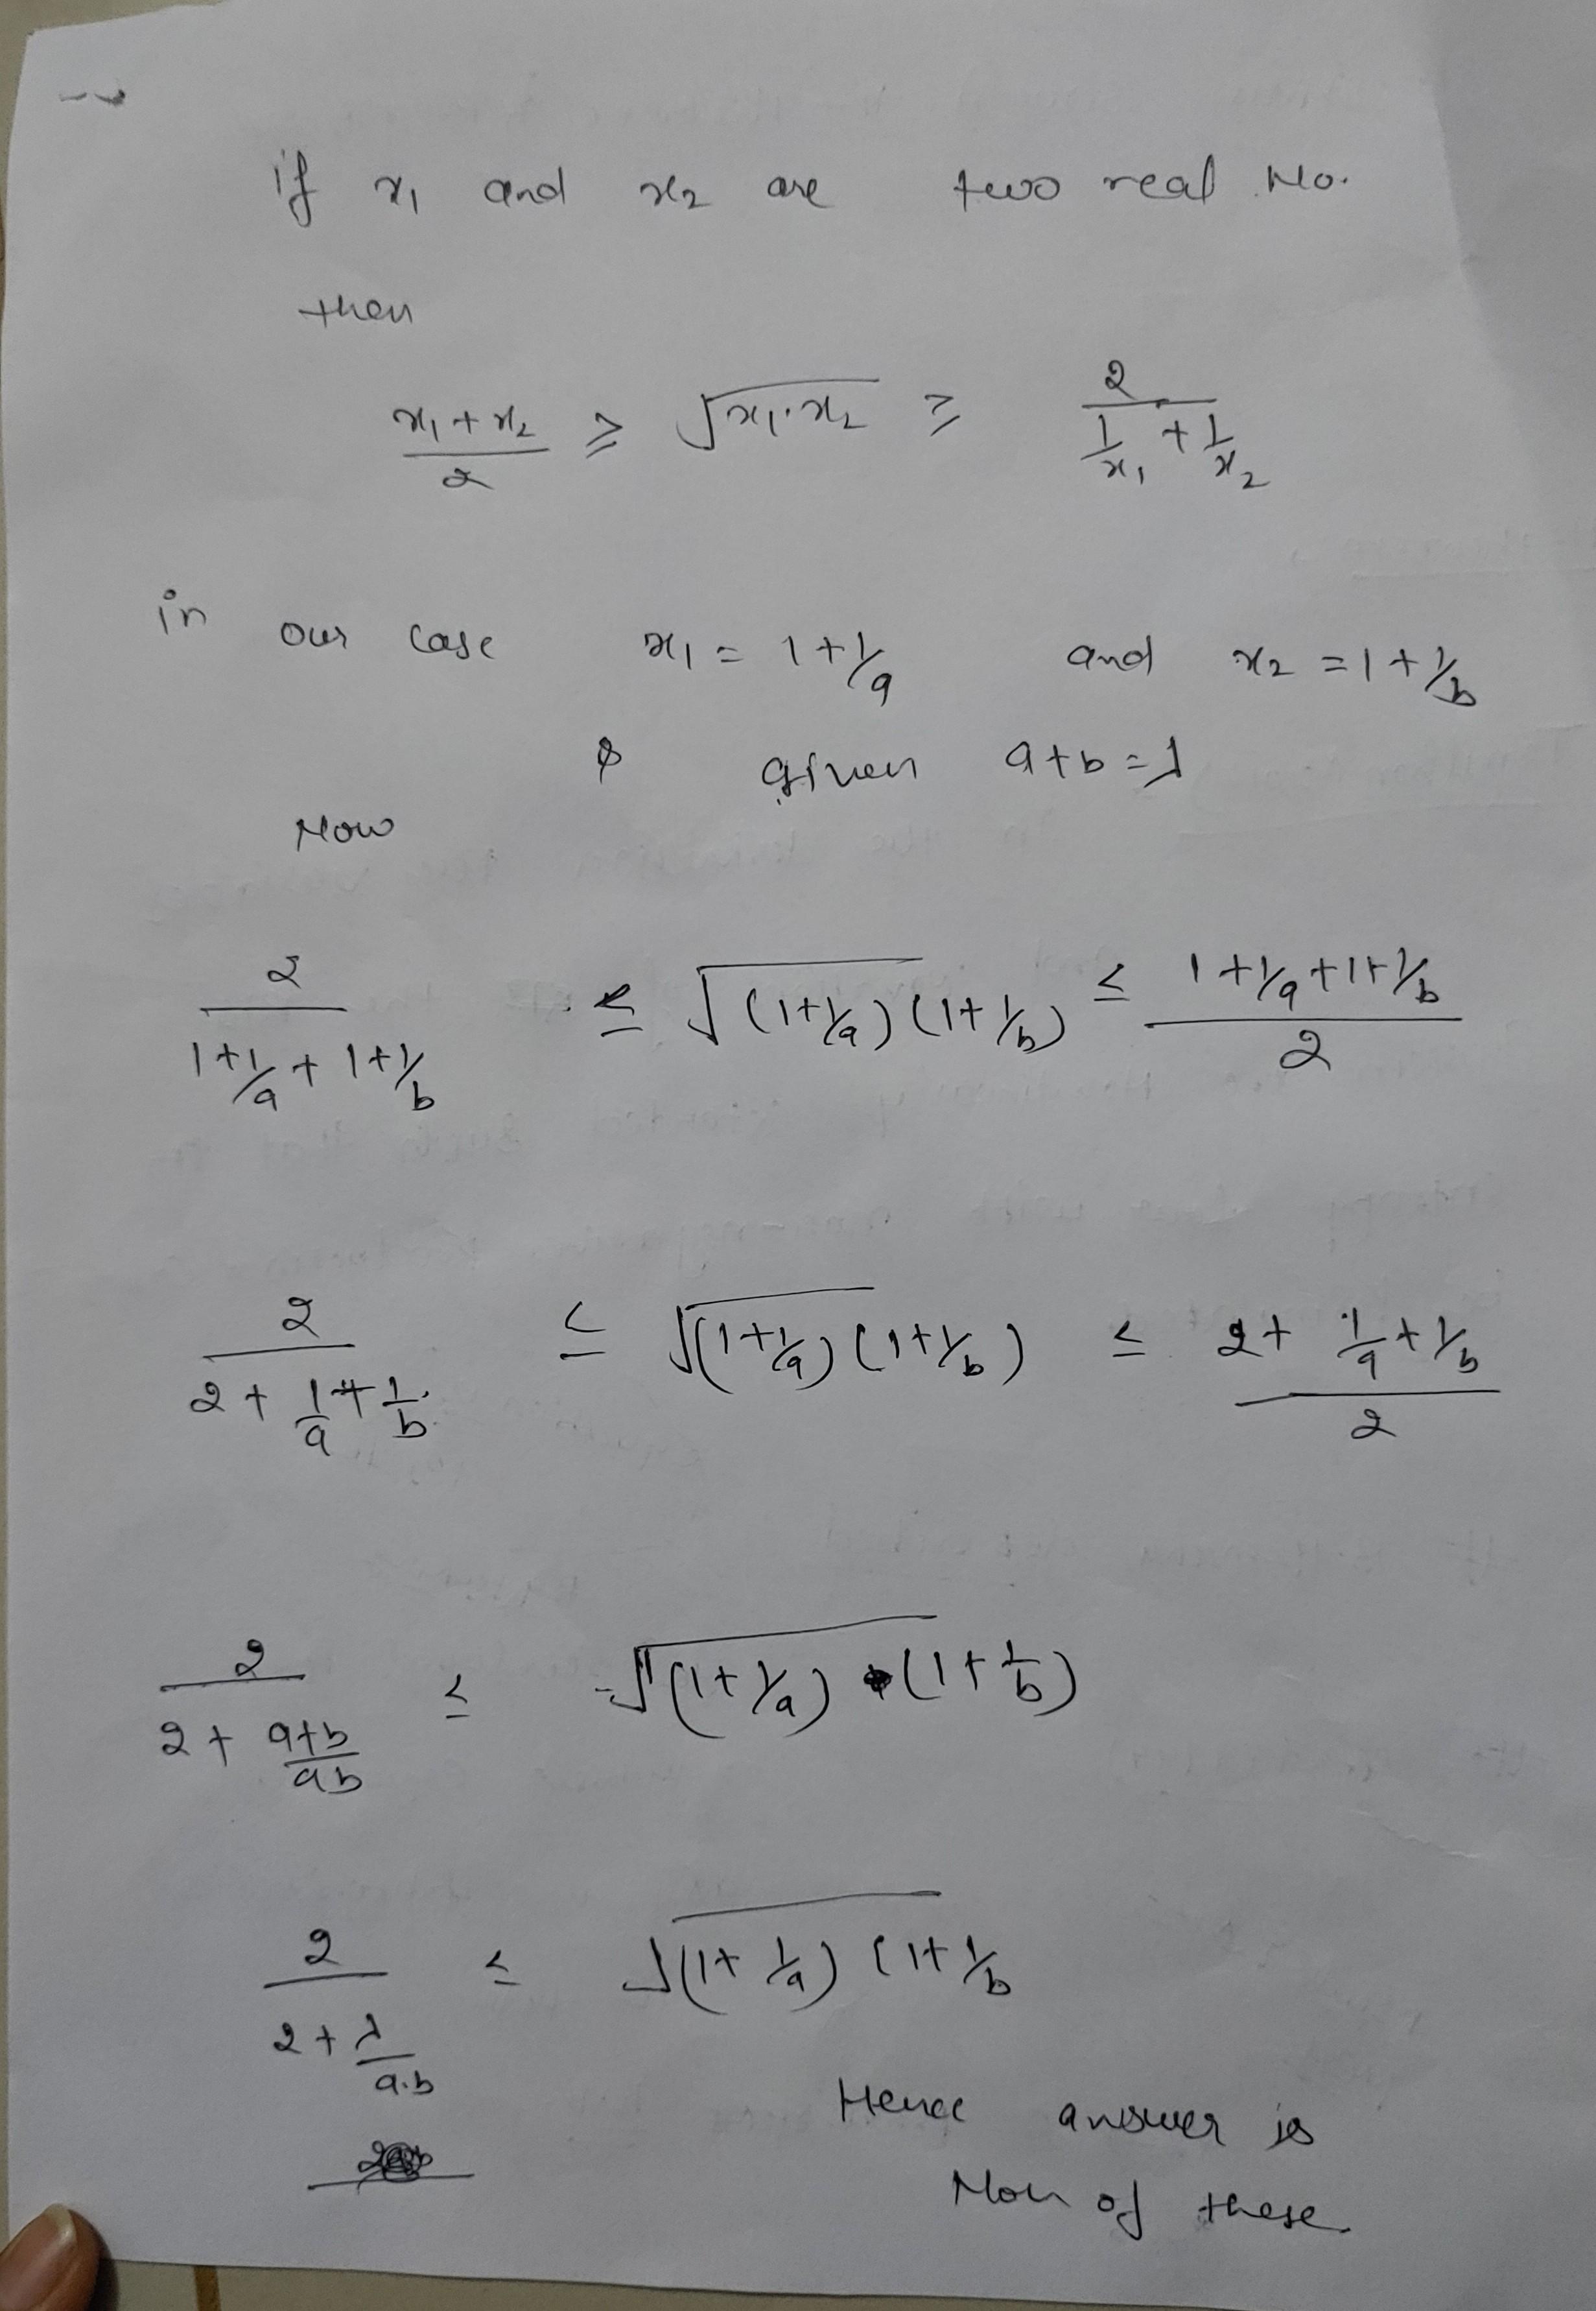 if x₁ and x₂ are two real No.
then
(x₁+x₂)/2 ≥ √(x₁.x₂) ≥ 2/(1/x₁ + 1/x₂)
in our case x₁ = 1+1/a and x₂ = 1+1/b
& given a+b=λ
Now
2/(1+1/a + 1+1/b) ≤ √((1+1/a)(1+1/b)) ≤ (1+1/a+1+1/b)/2
2/(2 + 1/a + 1/b) ≤ √((1+1/a)(1+1/b)) ≤ (2+ 1/a + 1/b)/2
2/(2 + (a+b)/(ab)) ≤ √((1+1/a) (1+1/b))
2/(2+ λ/(a.b)) ≤ √((1+1/a)(1+1/b
Hence answer is
Non of these